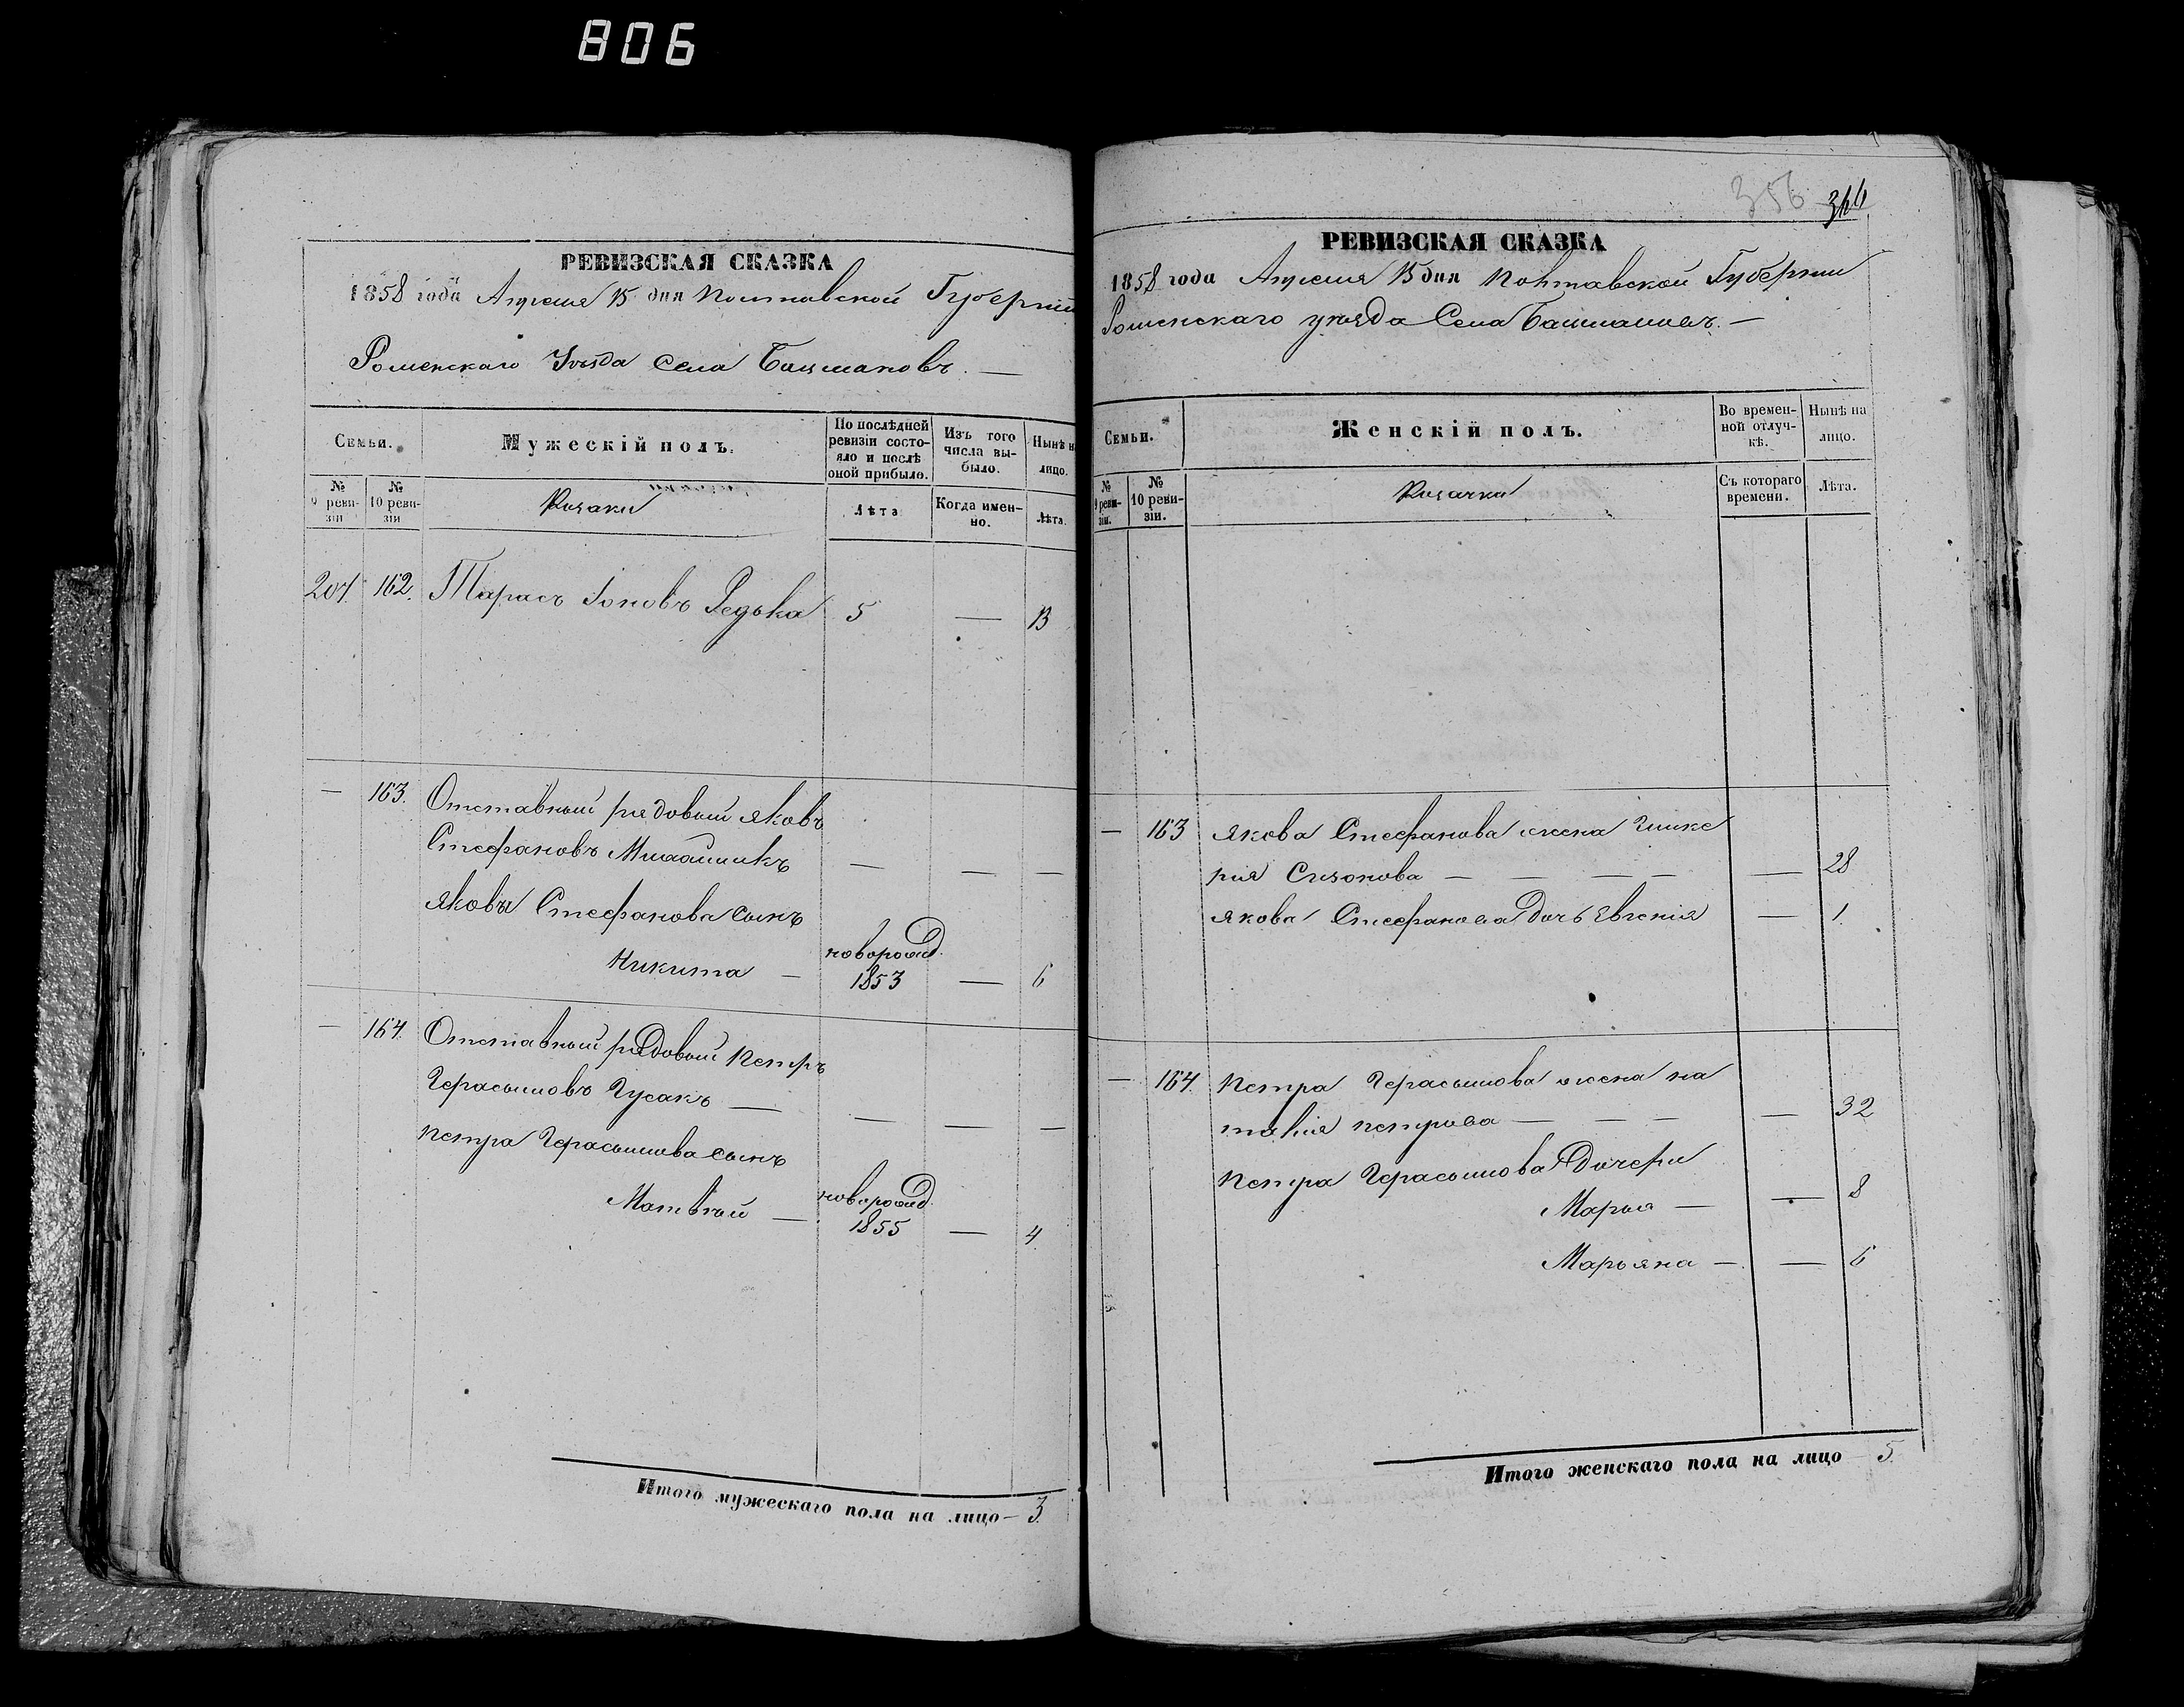 806
РЕВИЗСКАЯ СКАЗКА
1858 года Апреля 15 дня Полтавской Губерніи
Роменскаго Уѣзда села Башмаковъ. —
Семьи.
Мужескій полъ.
По послѣдней ревизіи состояло и послѣ оной прибыло.
Изъ того числа выбыло.
Нынѣ на лицо.
№ 9 ревизіи
№ 10 ревизіи
Козаки
Лѣта
Когда именно.
Лѣта.
207. 162. Тарасъ Іоновъ Редька 5 — 13
— 163. Отставный рядовый Яковъ
Стефановъ — — —
Якова Стефанова сынъ
новорожд.
Никита — 1853 — 6
— 164. Отставный рядовый Петръ
Герасимовъ Гусакъ — — — —
Петра Герасимова сынъ
новорожд.
Матвѣй — 1855 — 4
Итого мужескаго пола на лицо — 3.
356 364
РЕВИЗСКАЯ СКАЗКА
1858 года Апреля 15 дня Полтавской Губерніи
Роменскаго уѣзда Села Башмаковъ. —
Семьи.
Женскій полъ.
Во временной отлучкѣ.
Нынѣ на лицо.
№ 9 ревизіи.
№ 10 ревизіи.
Козачки
Съ котораго времени.
Лѣта.
— 163 Якова Стефанова жена Глике
рия Сизонова — — — — — 28
Якова Стефанова Дочь Евгенія — 1.
— 164. Петра Герасимова жена На
талія Петрова — — — — 32
Петра Герасимова Дочери
Марья — — 8
Марьяна — — 6
Итого женскаго пола на лицо — 5.